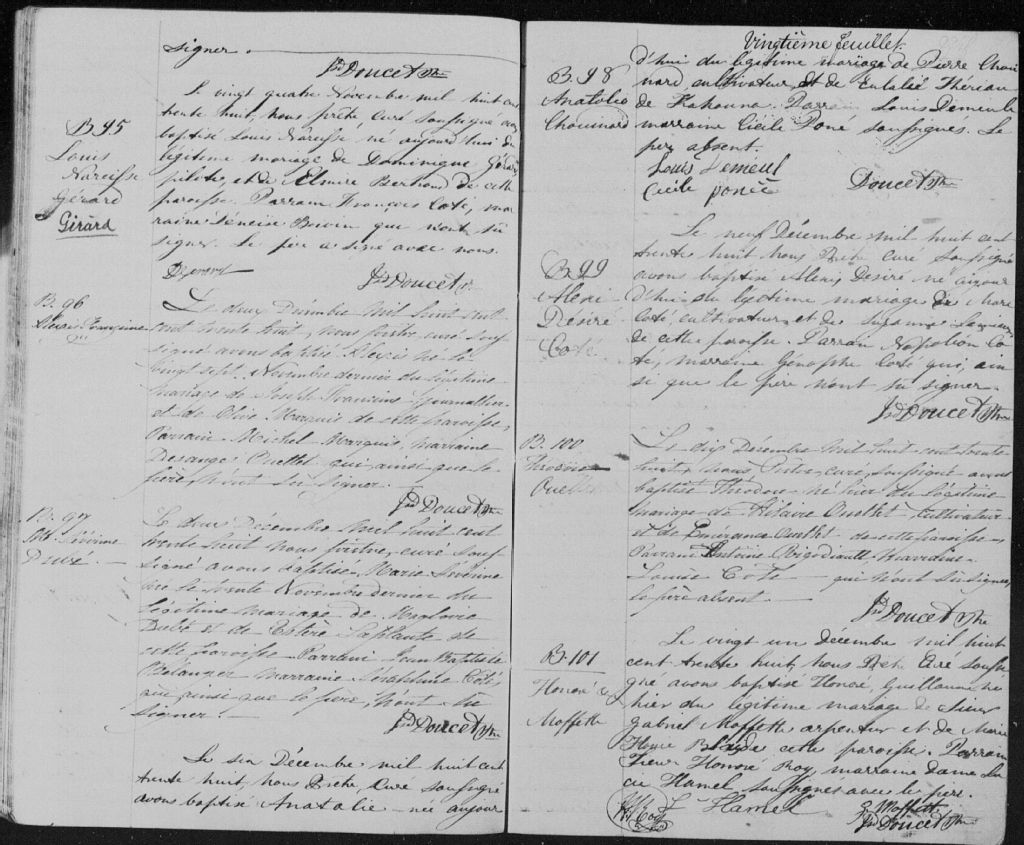 signer.
Js Doucet Ptre
B 95
Louis
Narcisse
Gérard
Girard
Le vingt quatre Novembre mil huit cent
trente huit, nous prêtre, curé soussigné avons
baptisé Louis Narcisse né aujourd'hui du
légitime mariage de Dominique Gérard
pilote, et de Elmire Bertrand de cette
paroisse. Parrain François Coté, mar
raine Boivin qui n'ont su
signer. Le père a signé avec nous.
D Gerard Js Doucet Ptre
B. 96
Alexis
Le deux Décembre mil huit cent
trente huit, nous prêtre, curé sous
signé avons baptisé Alexis né le
vingt sept Novembre dernier du légitime
mariage de Joseph journallier
et de Olive Marquis de cette paroisse,
Parrain Michel Marquis, marraine
Desanges Ouellet qui, ainsi que le
père, n'ont su signer.
Js Doucet Ptre
B. 97
Dubé
Le deux Décembre mil huit cent
trente huit nous prêtre, curé sous
signé avons baptisé Marie
née le trente Novembre dernier du
légitime mariage de
Dubé et de Laplante de
cette paroisse Parrain Jean Baptiste
Bélanger marraine Séraphine Coté
qui ainsi que le père, n'ont su
signer.
Js Doucet Ptre
Le six Décembre mil huit cent
trente huit, nous Prêtre, Curé soussigné
avons baptisé Anatolie née aujour
Vingtième feuillet.
B. 98
Anatolie
Chouinard
d'hui du légitime mariage de Pierre Choui
nard, cultivateur, et de Eulalie Thériau
de Kakouna. Parrain Louis Demeule
marraine Cicile Poné soussignés. Le
père absent.
Louis Demeul
Cecile ponée Doucet Ptre
B. 99
Alexi
Désiré
Coté
Le neuf Décembre mil huit cent
trente huit nous Prêtre Curé soussigné
avons baptisé Alexis Desiré né aujour
d'hui du légitime mariage de Marc
Coté, cultivateur, et de Suzanne
de cette paroisse. Parrain Napoléon Co
té, marraine Coté qui, ain
si que le père n'ont su signer.
Js Doucet Ptre
B. 100
Théodore
Ouellet
Le dix Décembre mil huit cent trente
huit, Nous Prêtre, curé, soussigné avons
baptisé Théodore né hier du légitime
mariage de Hilaire Ouellet, Cultivateur
et de Ouellet de cette paroisse
Parrain Antoine marraine
Louise Côté qui n'ont su signer,
le père absent
Js Doucet Ptre
B. 101
Honoré G
Moffette
Le vingt un Decembre mil huit
cent trente huit, nous Prêtre Curé soussi
gné avons baptisé Honoré, Guillaume né
hier du légitime mariage de Sieur
Gabriel Moffette arpenteur et de Marie
de cette paroisse. Parrain
Sieur Honoré Roy, marraine dame Lu
cie Hamel soussignés avec le père.
L Hamel
G Moffett
Js Doucet Ptre